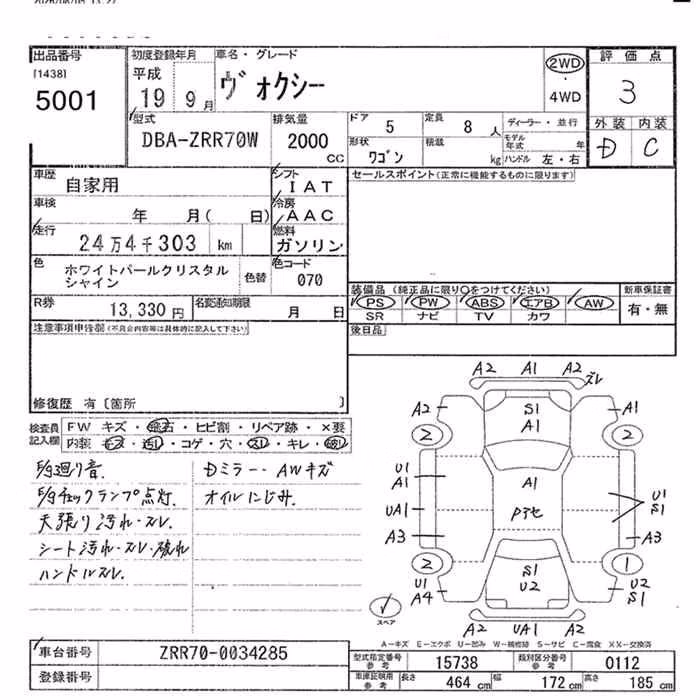 出品番号
[1438]
5001
初度登録年月
平成
19 9月
車名・グレード
ヴォクシー
2WD
4WD
評価点
3
外装 内装
D C
型式
DBA-ZRR70W
排気量
2000
CC
ドア
5
定員
8人
ディーラー・並行
モデル年式 年
形状
ワゴン
積載
kg
ハンドル 左・右
車歴
自家用
シフト
IAT
車検
年 月( 日)
冷房
AAC
走行
24万4千303 km
燃料
ガソリン
色
ホワイトパールクリスタル
シャイン
色替
色コード
070
R券
13,330円
名変通知期限
月 日
セールスポイント(正常に機能するものに限ります)
装備品 (純正品に限り○をつけてください)
PS PW ABS エアB AW
SR ナビ TV カワ
新車保証書
有・無
後日品
注意事項申告欄(不具合内容等は具体的に記入して下さい)
修復歴 有〔箇所 〕
検査員
記入欄
FW キズ・飛石・ヒビ割・リペア跡・×要
内装 キズ・汚れ・コゲ・穴・スレ・キレ・破れ
天張り汚れ・スレ.
シート汚れ・スレ・破れ
ハンドルスレ.
Dミラー・AWキズ
オイルにじみ.
A2 A1 A2
ズレ
A2 S1 A1
A1
2 2
U1
A1 A1 U1
S1
UA1
A3 A3
2 S1 1
U2
U1 U2
A4 S1
A2 UA1 A2
スペア
A-キズ E-エクボ U-凹み W-補修跡 S-サビ C-腐食 XX-交換済
車台番号
ZRR70-0034285
登録番号
型式指定番号
参考
15738
類別区分番号
参考
0112
車庫証明用
参考
長さ 464 cm
幅 172 cm
高さ 185 cm